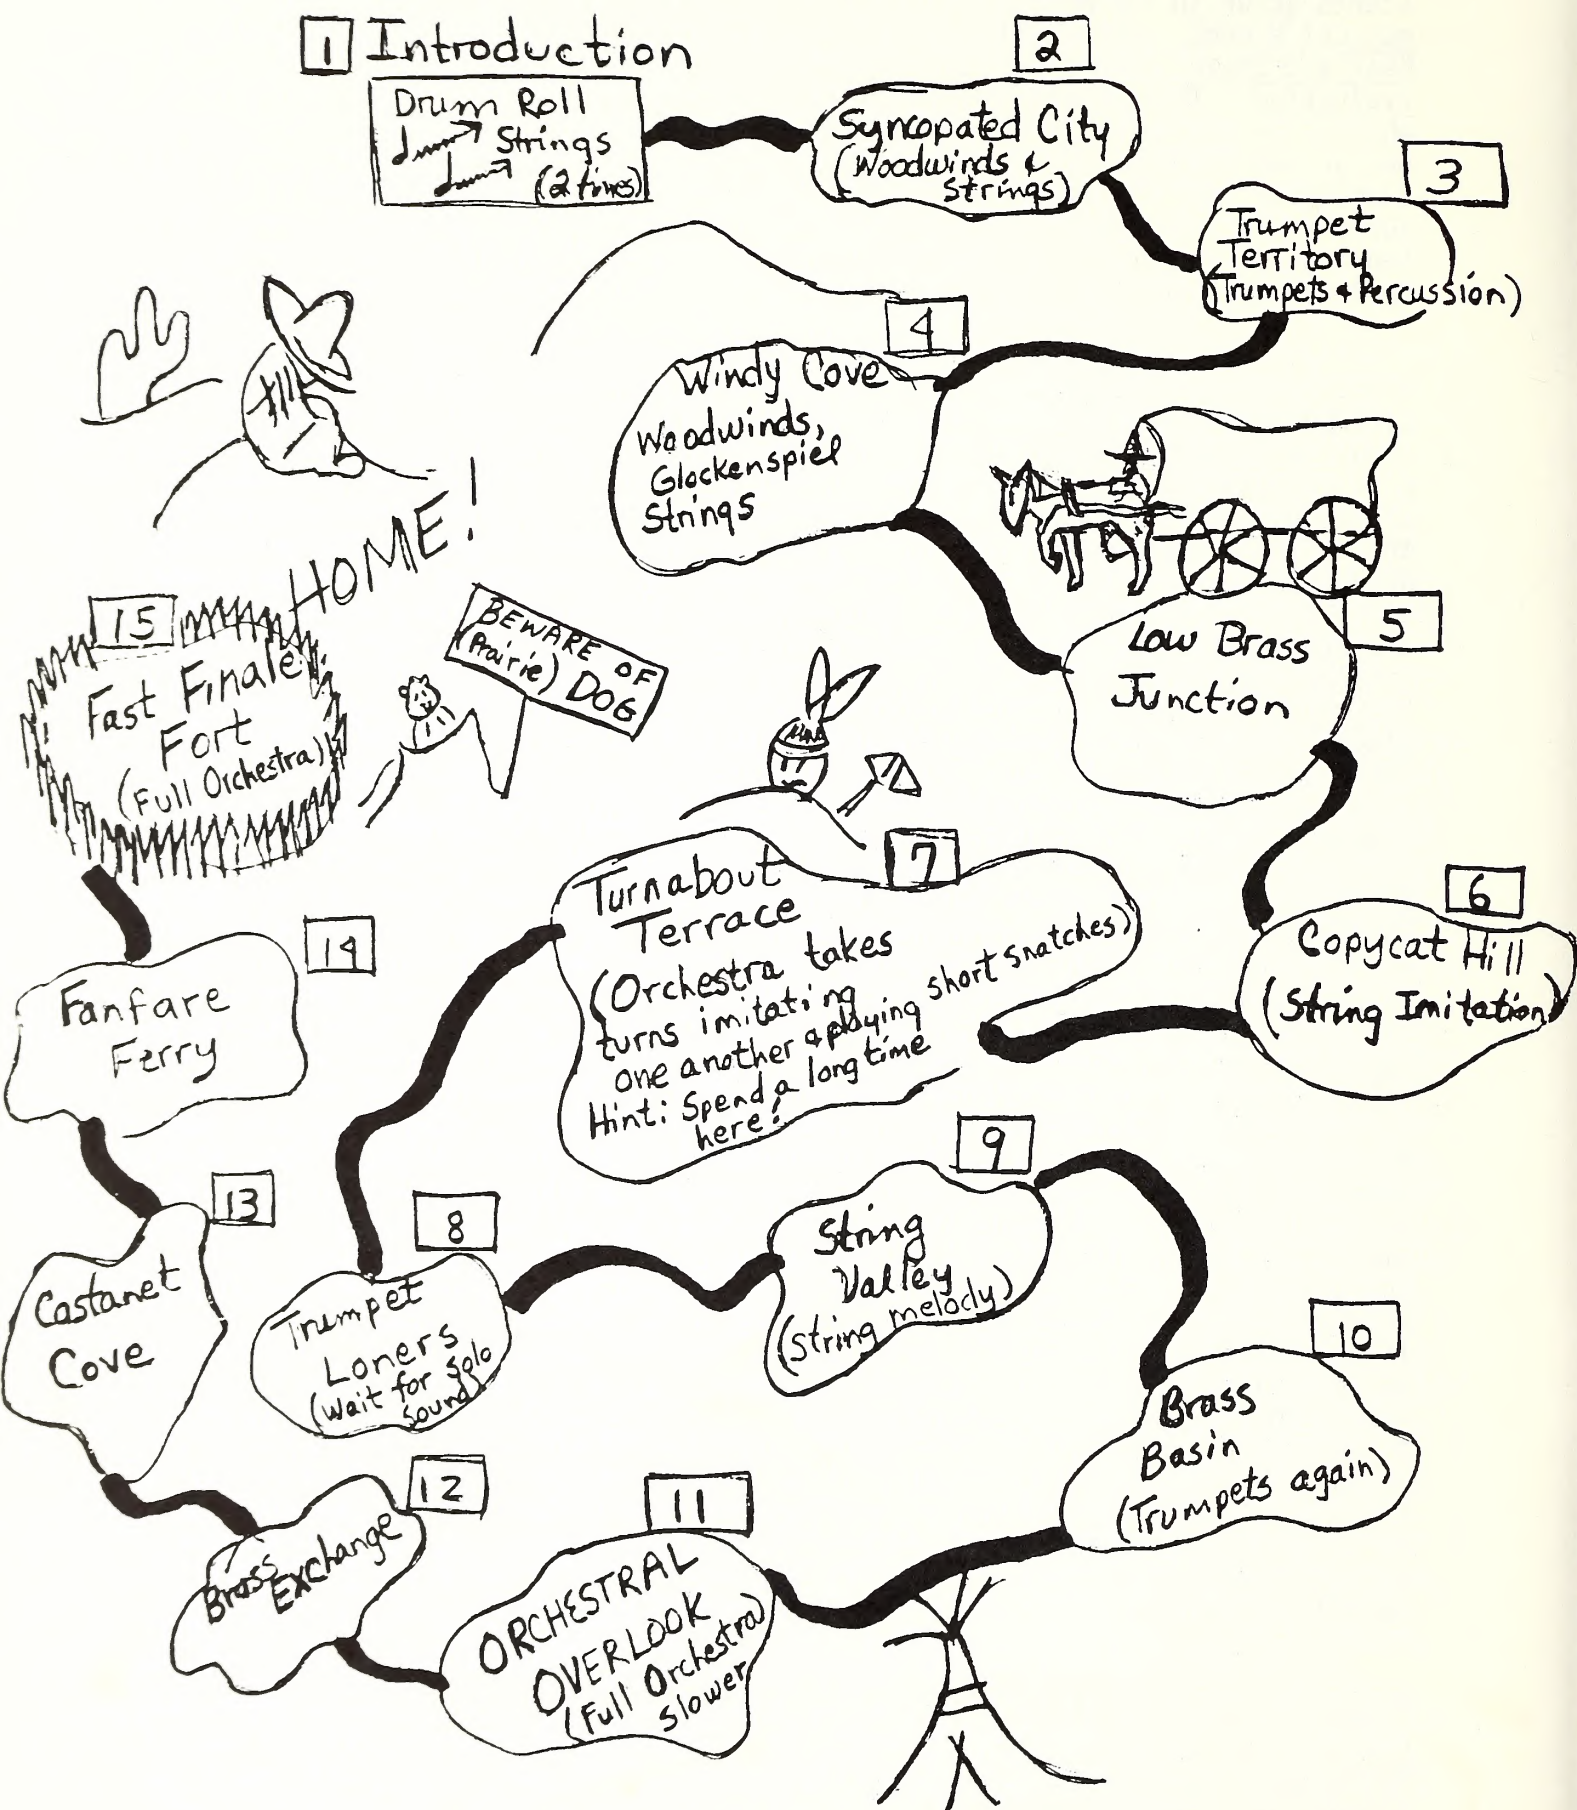 1 Introduction
Drum Roll
Strings
(2 times)
2
Syncopated City
(Woodwinds &
Strings)
3
Trumpet
Territory
(Trumpets & Percussion)
4
Windy Cove
Woodwinds,
Glockenspiel
Strings
5
Low Brass
Junction
6
Copycat Hill
(String Imitation)
7
Turnabout
Terrace
(Orchestra takes
turns imitating
one another & playing short snatches)
Hint: Spend a long time
here!
8
Trumpet
Loners
(Wait for solo
sound)
9
String
Valley
(String melody)
10
Brass
Basin
(Trumpets again)
11
ORCHESTRAL
OVERLOOK
(Full Orchestra)
slower
12
Brass
Exchange
13
Castanet
Cove
14
Fanfare
Ferry
15
Fast Finale
Fort
(Full Orchestra)
HOME!
BEWARE OF
(Prairie) DOG